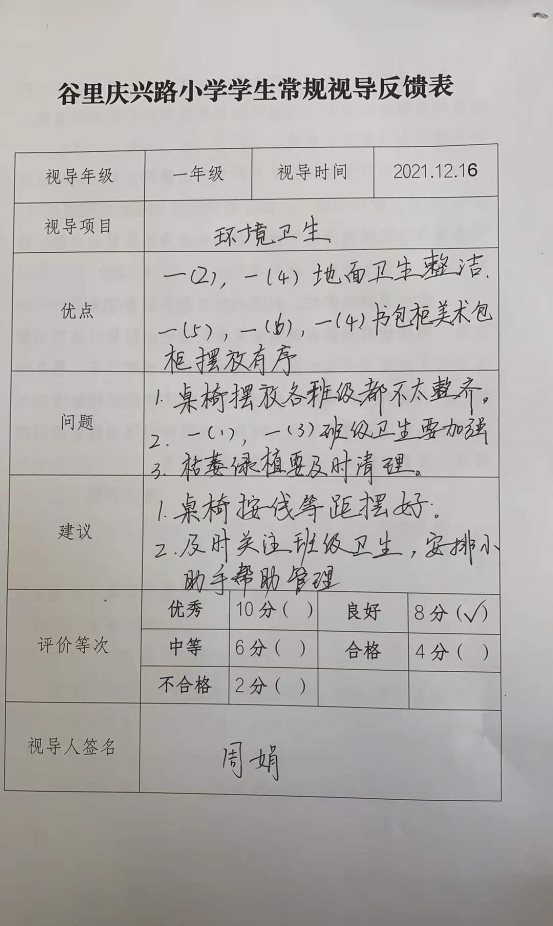 谷里庆兴路小学学生常规视导反馈表
视导年级 一年级 视导时间 2021.12.16
视导项目 环境卫生
优点
一(2)，一(4) 地面卫生整洁.
一(5)，一(6)，一(4)书包柜美术包
柜摆放有序
问题
1. 桌椅摆放各班级都不太整齐。
2. 一(1)，一(3)班级卫生要加强
3. 枯萎绿植要及时清理。
建议
1. 桌椅按线等距摆好.
2. 及时关注班级卫生，安排小
助手帮助管理
评价等次
优秀 10分( ) 良好 8分(√)
中等 6分( ) 合格 4分( )
不合格 2分( )
视导人签名 周娟